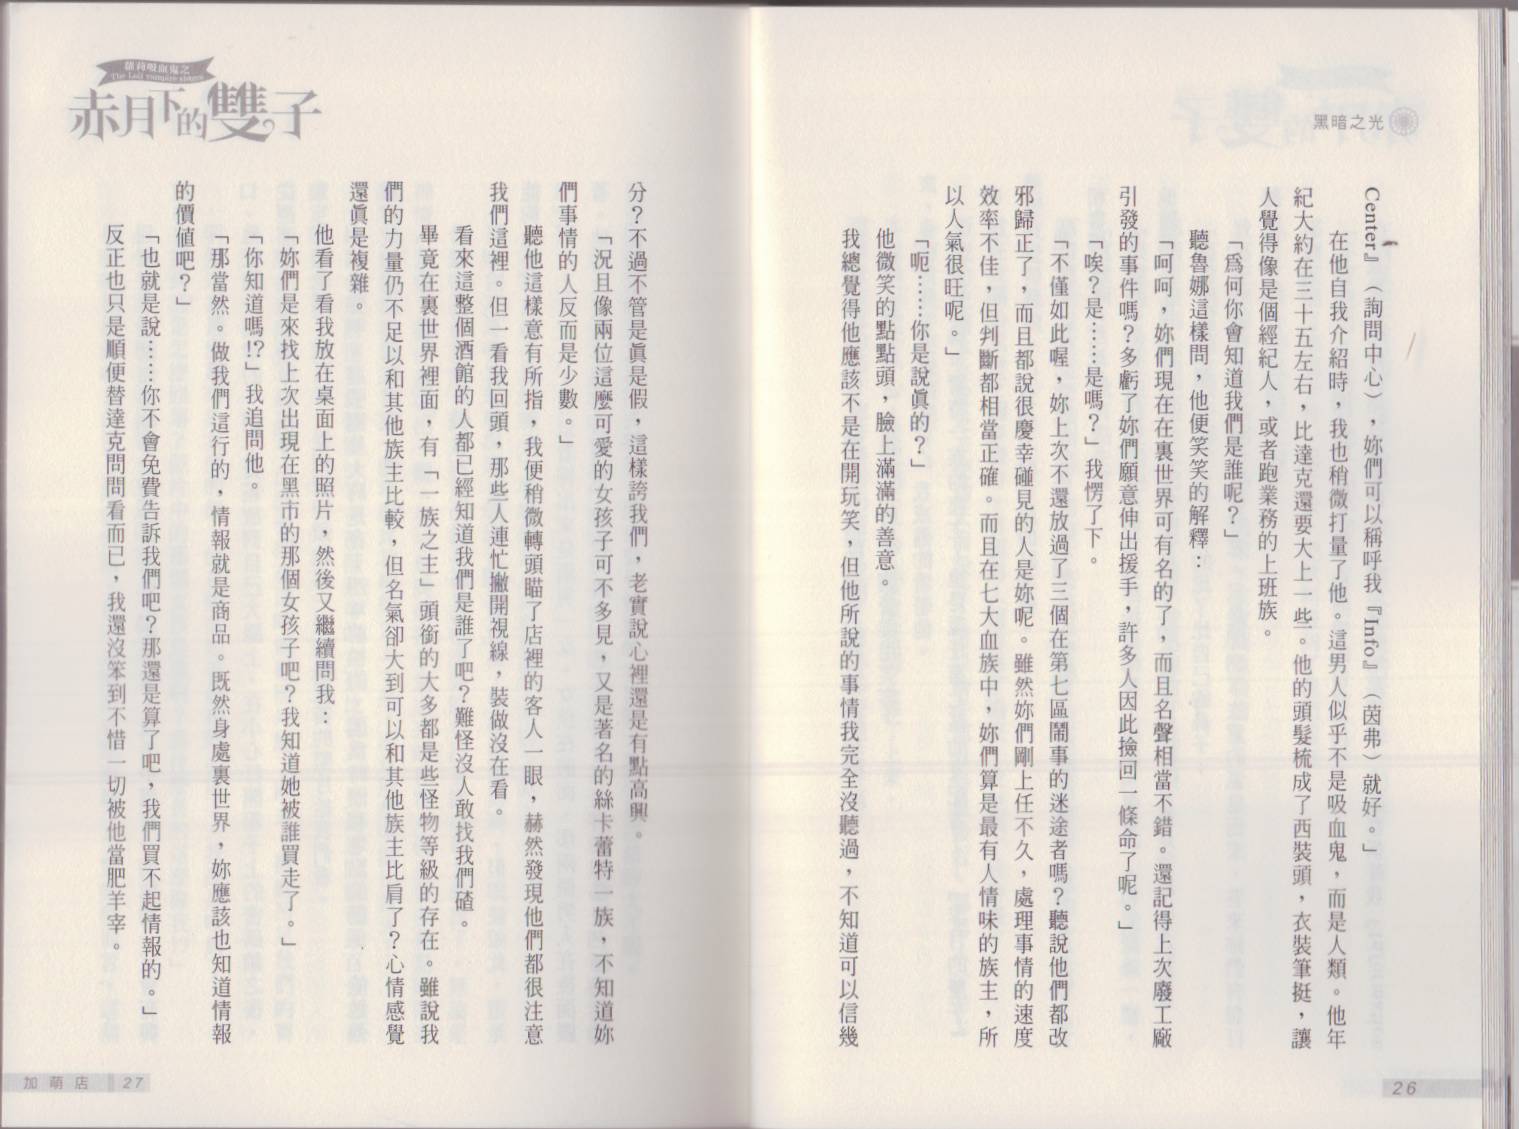 黑暗之光
Center』（詢問中心），妳們可以稱呼我『Info』（茵弗）就好。」
在他自我介紹時，我也稍微打量了他。這男人似乎不是吸血鬼，而是人類。他年
紀大約在三十五左右，比達克還要大上一些。他的頭髮梳成了西裝頭，衣裝筆挺，讓
人覺得像是個經紀人，或者跑業務的上班族。
「爲何你會知道我們是誰呢？」
聽魯娜這樣問，他便笑笑的解釋：
「呵呵，妳們現在在裏世界可有名的了，而且名聲相當不錯。還記得上次廢工廠
引發的事件嗎？多虧了妳們願意伸出援手，許多人因此撿回一條命了呢。」
「唉？是……是嗎？」我愣了下。
「不僅如此喔，妳上次不還放過了三個在第七區鬧事的迷途者嗎？聽說他們都改
邪歸正了，而且都說很慶幸碰見的人是妳呢。雖然妳們剛上任不久，處理事情的速度
效率不佳，但判斷都相當正確。而且在七大血族中，妳們算是最有人情味的族主，所
以人氣很旺呢。」
「呃……你是說眞的？」
他微笑的點點頭，臉上滿滿的善意。
我總覺得他應該不是在開玩笑，但他所說的事情我完全沒聽過，不知道可以信幾
26
蘿莉吸血鬼之
The Loli vampire sisters
赤月下的雙子
分？不過不管是眞是假，這樣誇我們，老實說心裡還是有點高興。
「況且像兩位這麼可愛的女孩子可不多見，又是著名的絲卡蕾特一族，不知道妳
們事情的人反而是少數。」
聽他這樣意有所指，我便稍微轉頭瞄了店裡的客人一眼，赫然發現他們都很注意
我們這裡。但一看我回頭，那些人連忙撇開視線，裝做沒在看。
看來這整個酒館的人都已經知道我們是誰了吧？難怪沒人敢找我們碴。
畢竟在裏世界裡面，有「一族之主」頭銜的大多都是些怪物等級的存在。雖說我
們的力量仍不足以和其他族主比較，但名氣卻大到可以和其他族主比肩了？心情感覺
還眞是複雜。
他看了看我放在桌面上的照片，然後又繼續問我：
「妳們是來找上次出現在黑市的那個女孩子吧？我知道她被誰買走了。」
「你知道嗎!?」我追問他。
「那當然。做我們這行的，情報就是商品。既然身處裏世界，妳應該也知道情報
的價値吧？」
「也就是說……你不會免費告訴我們吧？那還是算了吧，我們買不起情報的。」
反正也只是順便替達克問問看而已，我還沒笨到不惜一切被他當肥羊宰。
加萌店 27